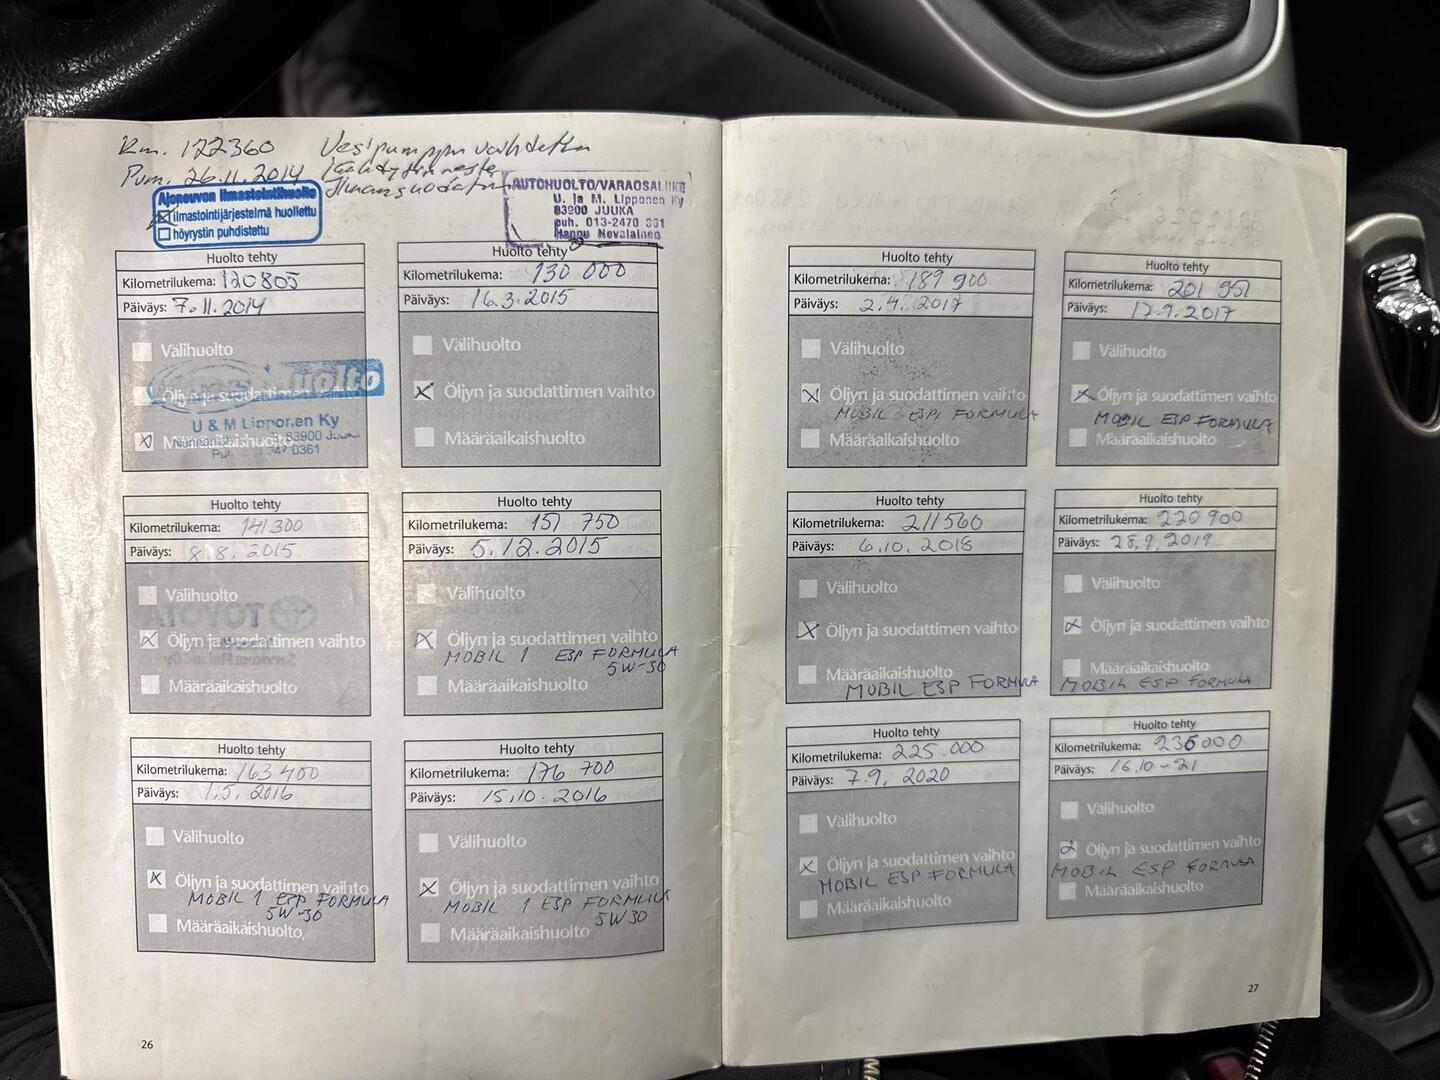 Km. 122360 Vesipumppu vaihdettu
Pvm. 26.11.2014 jäähdytinneste
Ajoneuvon ilmastointihuolto
ilmastointijärjestelmä huollettu
höyrystin puhdistettu
AUTOHUOLTO/VARAOSALIIKE
U. ja M. Lipponen Ky
83900 JUUKA
puh. 013-2470 361
Hannu Nevalainen
Huolto tehty
Kilometrilukema: 120805
Päiväys: 7.11.2014
Välihuolto
Öljyn ja suodattimen vaihto
huolto
U & M Lipponen Ky
83900
Määräaikaishuolto
Huolto tehty
Kilometrilukema: 130 000
Päiväys: 16.3.2015
Välihuolto
Öljyn ja suodattimen vaihto
Määräaikaishuolto
Huolto tehty
Kilometrilukema: 141300
Päiväys: 8.8.2015
Välihuolto
Öljyn ja suodattimen vaihto
Määräaikaishuolto
Huolto tehty
Kilometrilukema: 151 750
Päiväys: 5.12.2015
Välihuolto
Öljyn ja suodattimen vaihto
MOBIL 1 ESP FORMULA
5W-30
Määräaikaishuolto
Huolto tehty
Kilometrilukema: 163400
Päiväys: 1.5.2016
Välihuolto
Öljyn ja suodattimen vaihto
MOBIL 1 ESP FORMULA
5W-30
Määräaikaishuolto
Huolto tehty
Kilometrilukema: 176 700
Päiväys: 15.10.2016
Välihuolto
Öljyn ja suodattimen vaihto
MOBIL 1 ESP FORMULA
5W30
Määräaikaishuolto
26
Huolto tehty
Kilometrilukema: 189 900
Päiväys: 2.4.2017
Välihuolto
Öljyn ja suodattimen vaihto
MOBIL ESP FORMULA
Määräaikaishuolto
Huolto tehty
Kilometrilukema: 201 951
Päiväys: 17.9.2017
Välihuolto
Öljyn ja suodattimen vaihto
MOBIL ESP FORMULA
Määräaikaishuolto
Huolto tehty
Kilometrilukema: 211560
Päiväys: 6.10.2018
Välihuolto
Öljyn ja suodattimen vaihto
Määräaikaishuolto
MOBIL ESP FORMULA
Huolto tehty
Kilometrilukema: 220900
Päiväys: 28.9.2019
Välihuolto
Öljyn ja suodattimen vaihto
Määräaikaishuolto
MOBIL ESP FORMULA
Huolto tehty
Kilometrilukema: 225.000
Päiväys: 7.9.2020
Välihuolto
Öljyn ja suodattimen vaihto
MOBIL ESP FORMULA
Määräaikaishuolto
Huolto tehty
Kilometrilukema: 236000
Päiväys: 16.10-21
Välihuolto
Öljyn ja suodattimen vaihto
MOBIL ESP FORMULA
Määräaikaishuolto
27